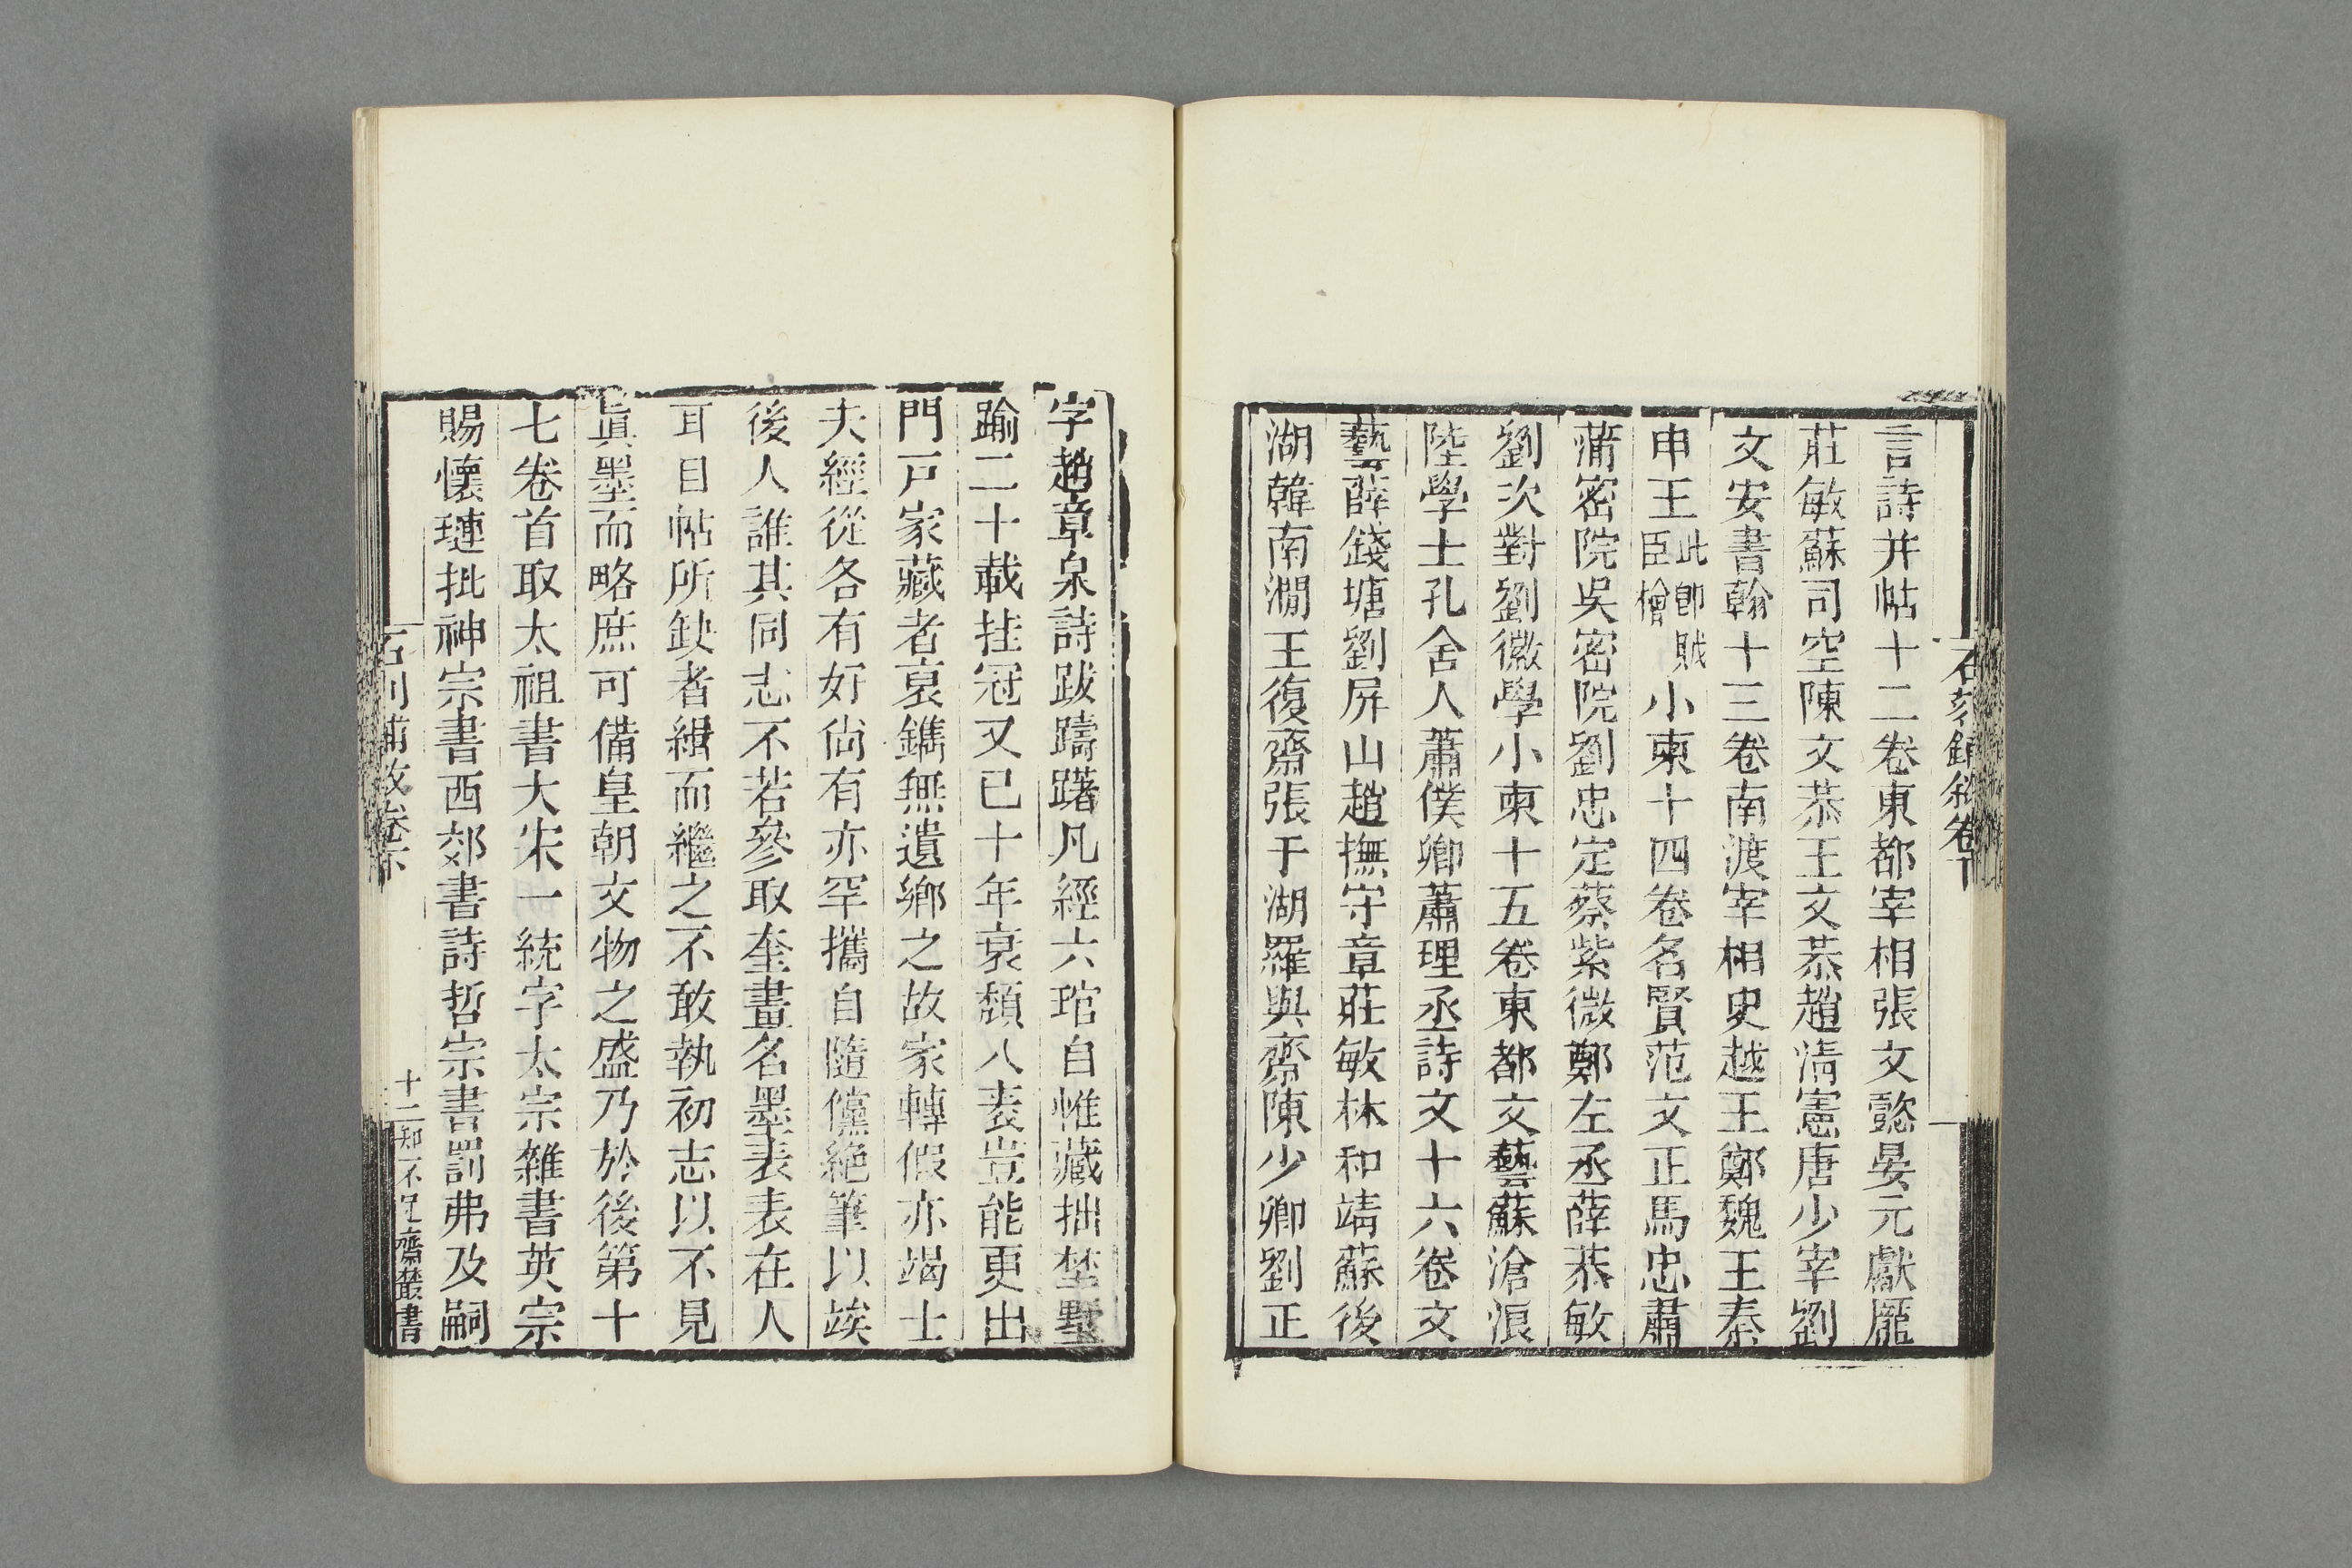 言詩并帖十二卷東都宰相張文懿晏元獻龐
莊敏蘇司空陳文恭王文恭趙清憲唐少宰劉
文安書翰十三卷南渡宰相史越王鄭魏王秦
申王此卽賊臣檜小柬十四卷名賢范文正馬忠肅
蒲密院吳密院劉忠定蔡紫微鄭左丞薛恭敏
劉次對劉徽學小柬十五卷東都文藝蘇滄浪
陸學士孔舍人蕭僕卿蕭理丞詩文十六卷文
藝薛錢塘劉屏山趙撫守章莊敏林和靖蘇後
湖韓南澗王復齋張于湖羅與齋陳少卿劉正
字趙章泉詩跋躊躇凡經六琯自惟藏拙埜墅
踰二十載挂冠又已十年衰頹八袠豈能更出
門戸家藏者裒鐫無遺鄉之故家轉假亦竭士
夫經從各有好尙有亦罕攜自隨儻絶筆以竢
後人誰其同志不若參取奎畫名墨表表在人
耳目帖所缺者緝而繼之不敢執初志以不見
眞墨而略庶可備皇朝文物之盛乃於後第十
七卷首取太祖書大宋一統字太宗雜書英宗
賜懷璉批神宗書西郊書詩哲宗書罰弗及嗣
卷下
十二
知不足齋叢書